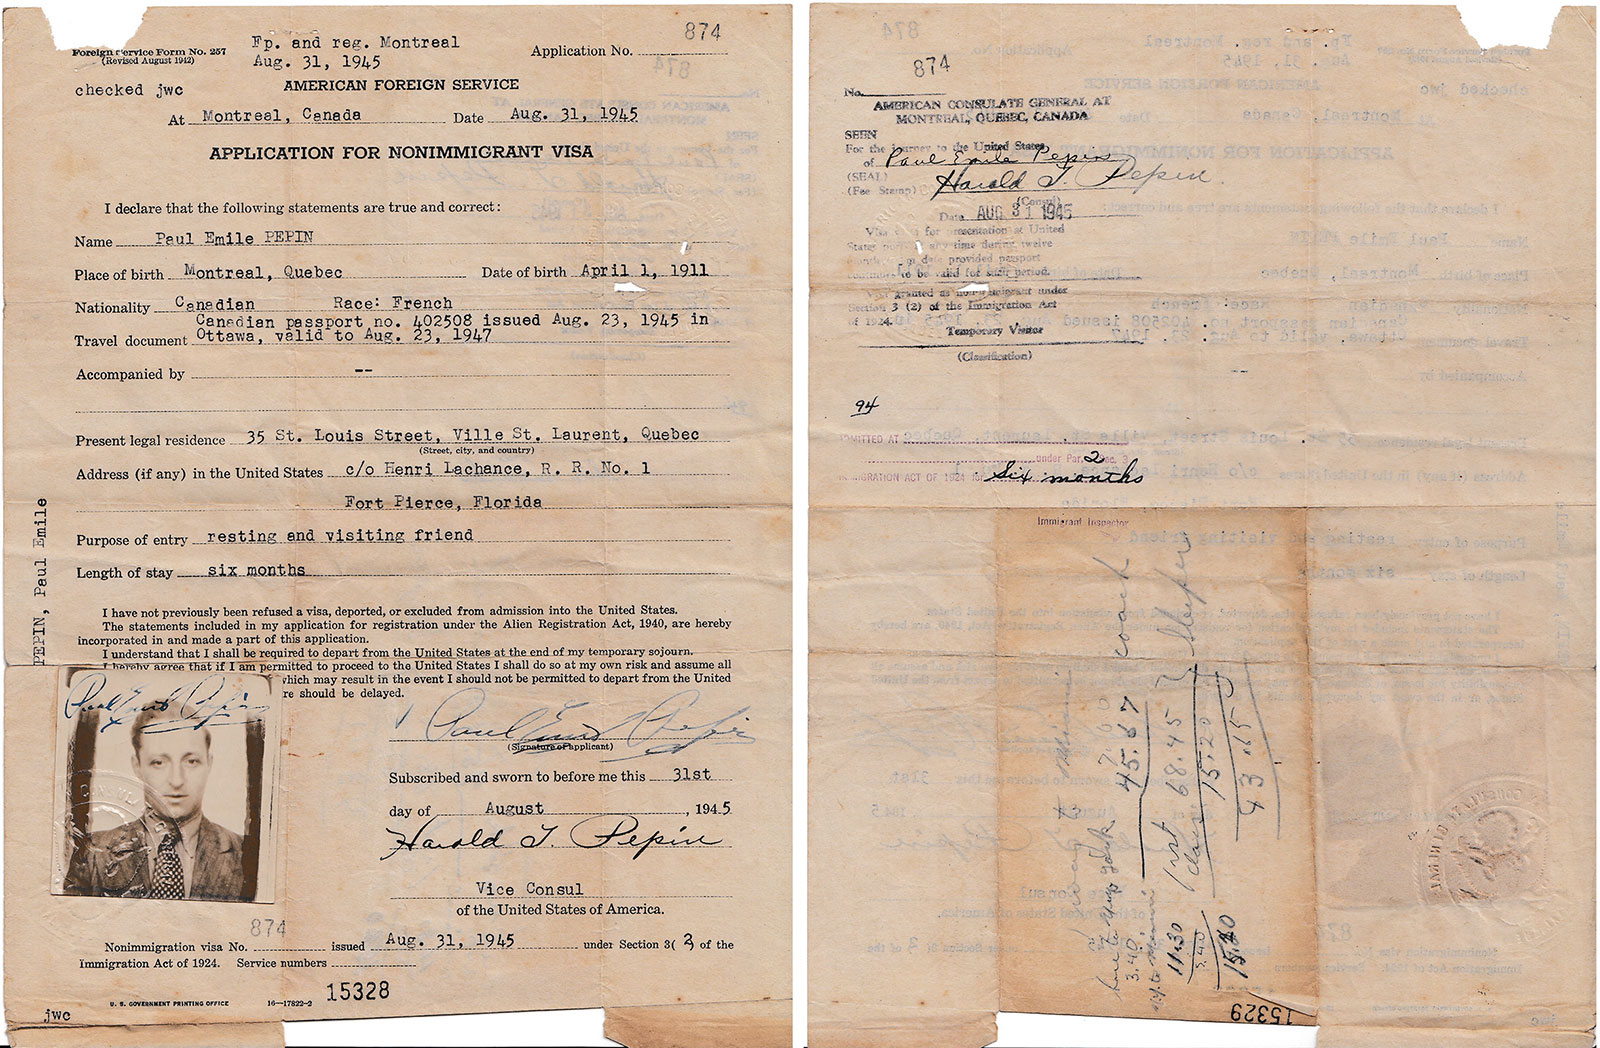 874
Foreign Service Form No. 257
(Revised August 1942)
Fp. and reg. Montreal
Aug. 31, 1945
Application No.
checked jwc
AMERICAN FOREIGN SERVICE
At Montreal, Canada Date Aug. 31, 1945
APPLICATION FOR NONIMMIGRANT VISA
I declare that the following statements are true and correct:
Name Paul Emile PEPIN
Place of birth Montreal, Quebec Date of birth April 1, 1911
Nationality Canadian Race: French
Canadian passport no. 402508 issued Aug. 23, 1945 in
Travel document Ottawa, valid to Aug. 23, 1947
Accompanied by --
Present legal residence 35 St. Louis Street, Ville St. Laurent, Quebec
(Street, city, and country)
Address (if any) in the United States c/o Henri Lachance, R. R. No. 1
Fort Pierce, Florida
Purpose of entry resting and visiting friend
Length of stay six months
PEPIN, Paul Emile
I have not previously been refused a visa, deported, or excluded from admission into the United States.
The statements included in my application for registration under the Alien Registration Act, 1940, are hereby
incorporated in and made a part of this application.
I understand that I shall be required to depart from the United States at the end of my temporary sojourn.
I hereby agree that if I am permitted to proceed to the United States I shall do so at my own risk and assume all
which may result in the event I should not be permitted to depart from the United
re should be delayed.
(Signature of applicant)
Subscribed and sworn to before me this 31st
day of August, 1945
Harold T. Pepin
Vice Consul
of the United States of America.
874
Nonimmigration visa No. issued Aug. 31, 1945 under Section 3(2) of the
Immigration Act of 1924. Service numbers
U. S. GOVERNMENT PRINTING OFFICE 16—17822-2 15328
jwc
874
No.
AMERICAN CONSULATE GENERAL AT
MONTREAL, QUEBEC, CANADA
SEEN
For the journey to the United States
of Paul Emile Pepin
(SEAL) Harold T. Pepin
(Fee Stamp) (Consul)
Date AUG 31 1945
for presentation at United
States any time during twelve
date provided passport
to be valid for such period.
granted as nonimmigrant under
Section 3 (2) of the Immigration Act
of 1924.
Temporary Visitor
(Classification)
94
ADMITTED AT
under Par. 2 Sec. 3
IMMIGRATION ACT OF 1924 FOR Six months
Immigrant Inspector
Miami coach
7.60
45.87
68.45 Sleeper
15.20
11.30
3.40
15329